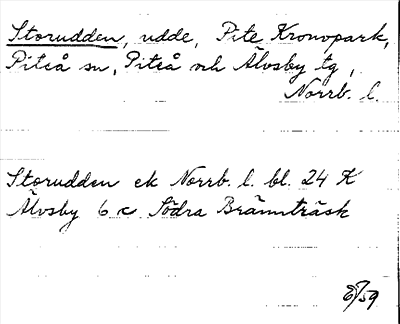 Storudden, udde, Pite Kronopark,
Piteå sn, Piteå och Älvsby tg,
Norrb. l.
Storudden ek Norrb. l. bl. 24 K
Älvsby 6 c Södra Brännträsk
/59